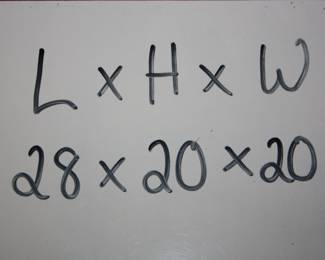 L x H x W
28 x 20 x 20